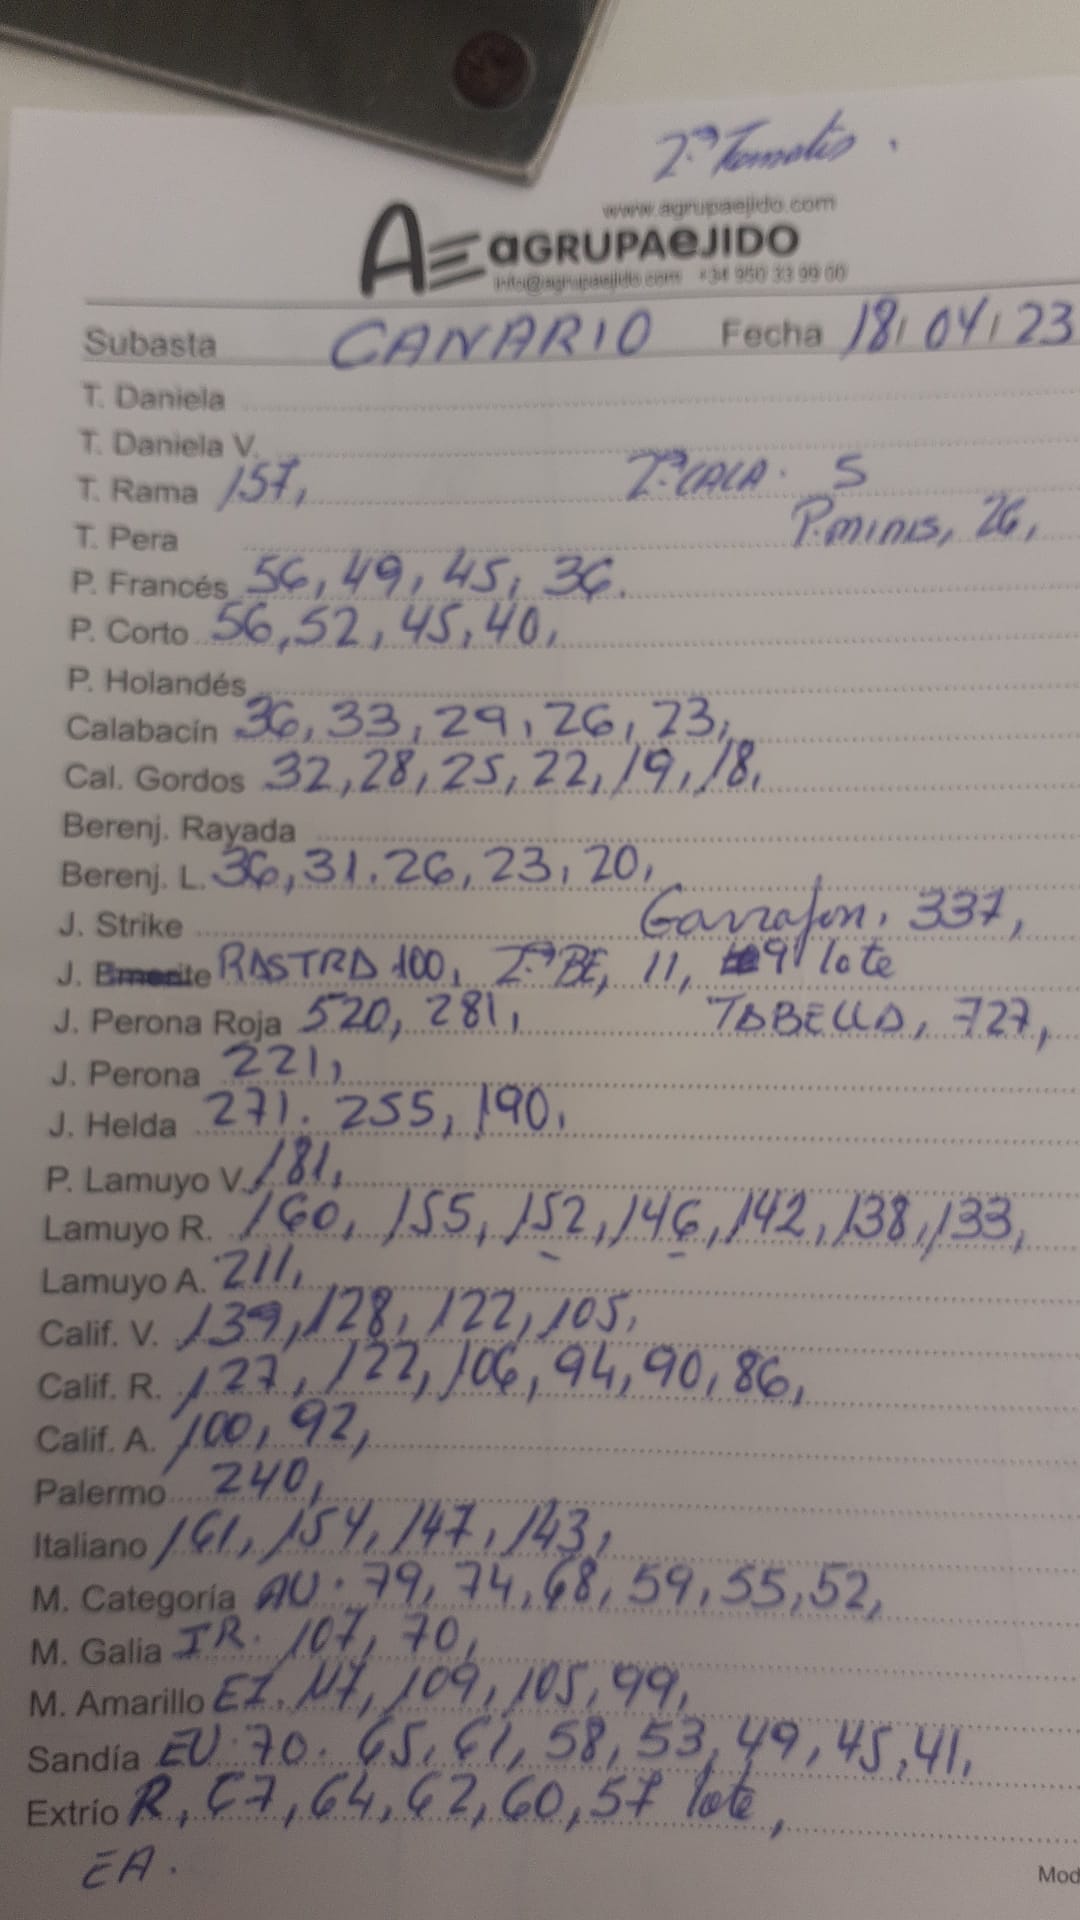 2ª Tomatis.
www.agrupaejido.com
AE aGRUPAeJIDO
info@agrupaejido.com +34 950 33 99 00
Subasta CANARIO Fecha 18/04/23
T. Daniela
T. Daniela V.
T. Rama 157, 2ª CALA. 5
T. Pera P. MINIS, 26,
P. Francés 56, 49, 45, 36.
P. Corto 56, 52, 45, 40,
P. Holandés
Calabacín 36, 33, 29, 26, 23,
Cal. Gordos 32, 28, 25, 22, 19, 18,
Berenj. Rayada
Berenj. L. 36, 31. 26, 23, 20,
J. Strike Garrafon, 337,
J. RASTRA 100, 2ª BE, 11, 91 lote
J. Perona Roja 520, 281, TABELLA, 727,
J. Perona 221,
J. Helda 271. 255, 190,
P. Lamuyo V. 181,
Lamuyo R. 160, 155, 152, 146, 142, 138, 133,
Lamuyo A. 211,
Calif. V. 139, 128, 122, 105,
Calif. R. 127, 122, 106, 94, 90, 86,
Calif. A. 100, 92,
Palermo 240,
Italiano 161, 154, 147, 143,
M. Categoría AU. 79, 74, 68, 59, 55, 52,
M. Galia IR. 107, 70,
M. Amarillo EI. 117, 109, 105, 99,
Sandía EU 70. 65, 61, 58, 53, 49, 45, 41,
Extrío R, 67, 64, 62, 60, 57 lote,
EA.
Mod